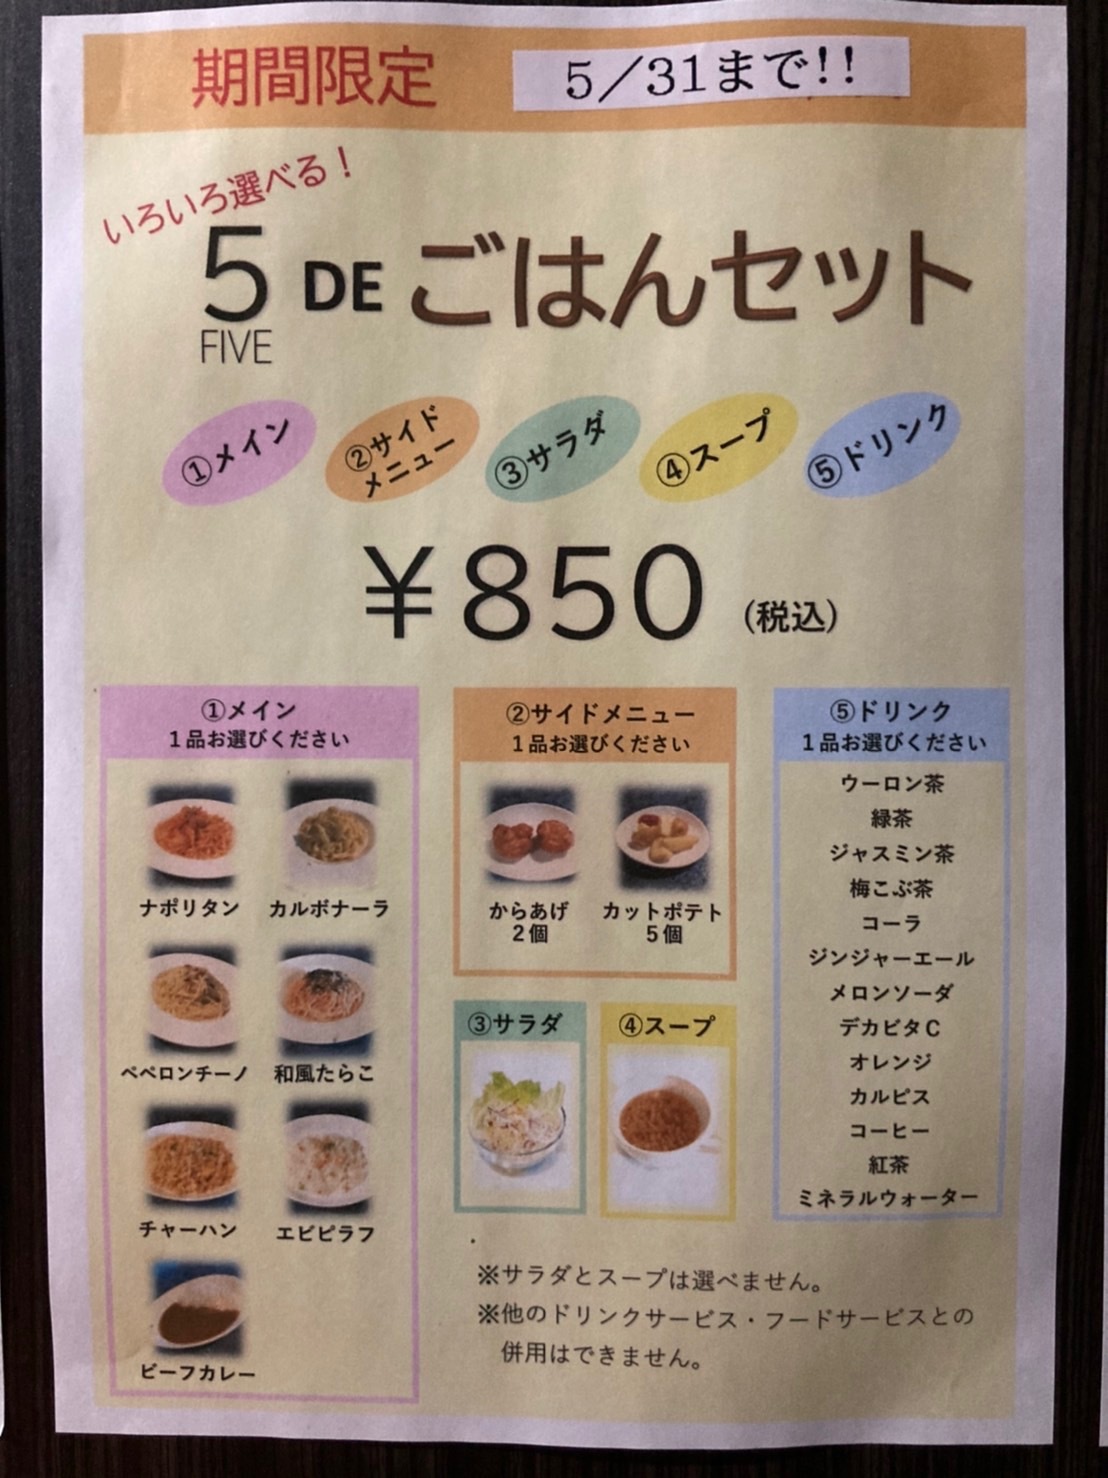 期間限定 5/31まで!!
いろいろ選べる！
5 DE ごはんセット
FIVE
①メイン
②サイド
メニュー
③サラダ
④スープ
⑤ドリンク
¥850 (税込)
①メイン
1品お選びください
ナポリタン カルボナーラ
ペペロンチーノ 和風たらこ
チャーハン エビピラフ
ビーフカレー
②サイドメニュー
1品お選びください
からあげ カットポテト
2個 5個
③サラダ ④スープ
⑤ドリンク
1品お選びください
ウーロン茶
緑茶
ジャスミン茶
梅こぶ茶
コーラ
ジンジャーエール
メロンソーダ
デカビタC
オレンジ
カルピス
コーヒー
紅茶
ミネラルウォーター
※サラダとスープは選べません。
※他のドリンクサービス・フードサービスとの
併用はできません。